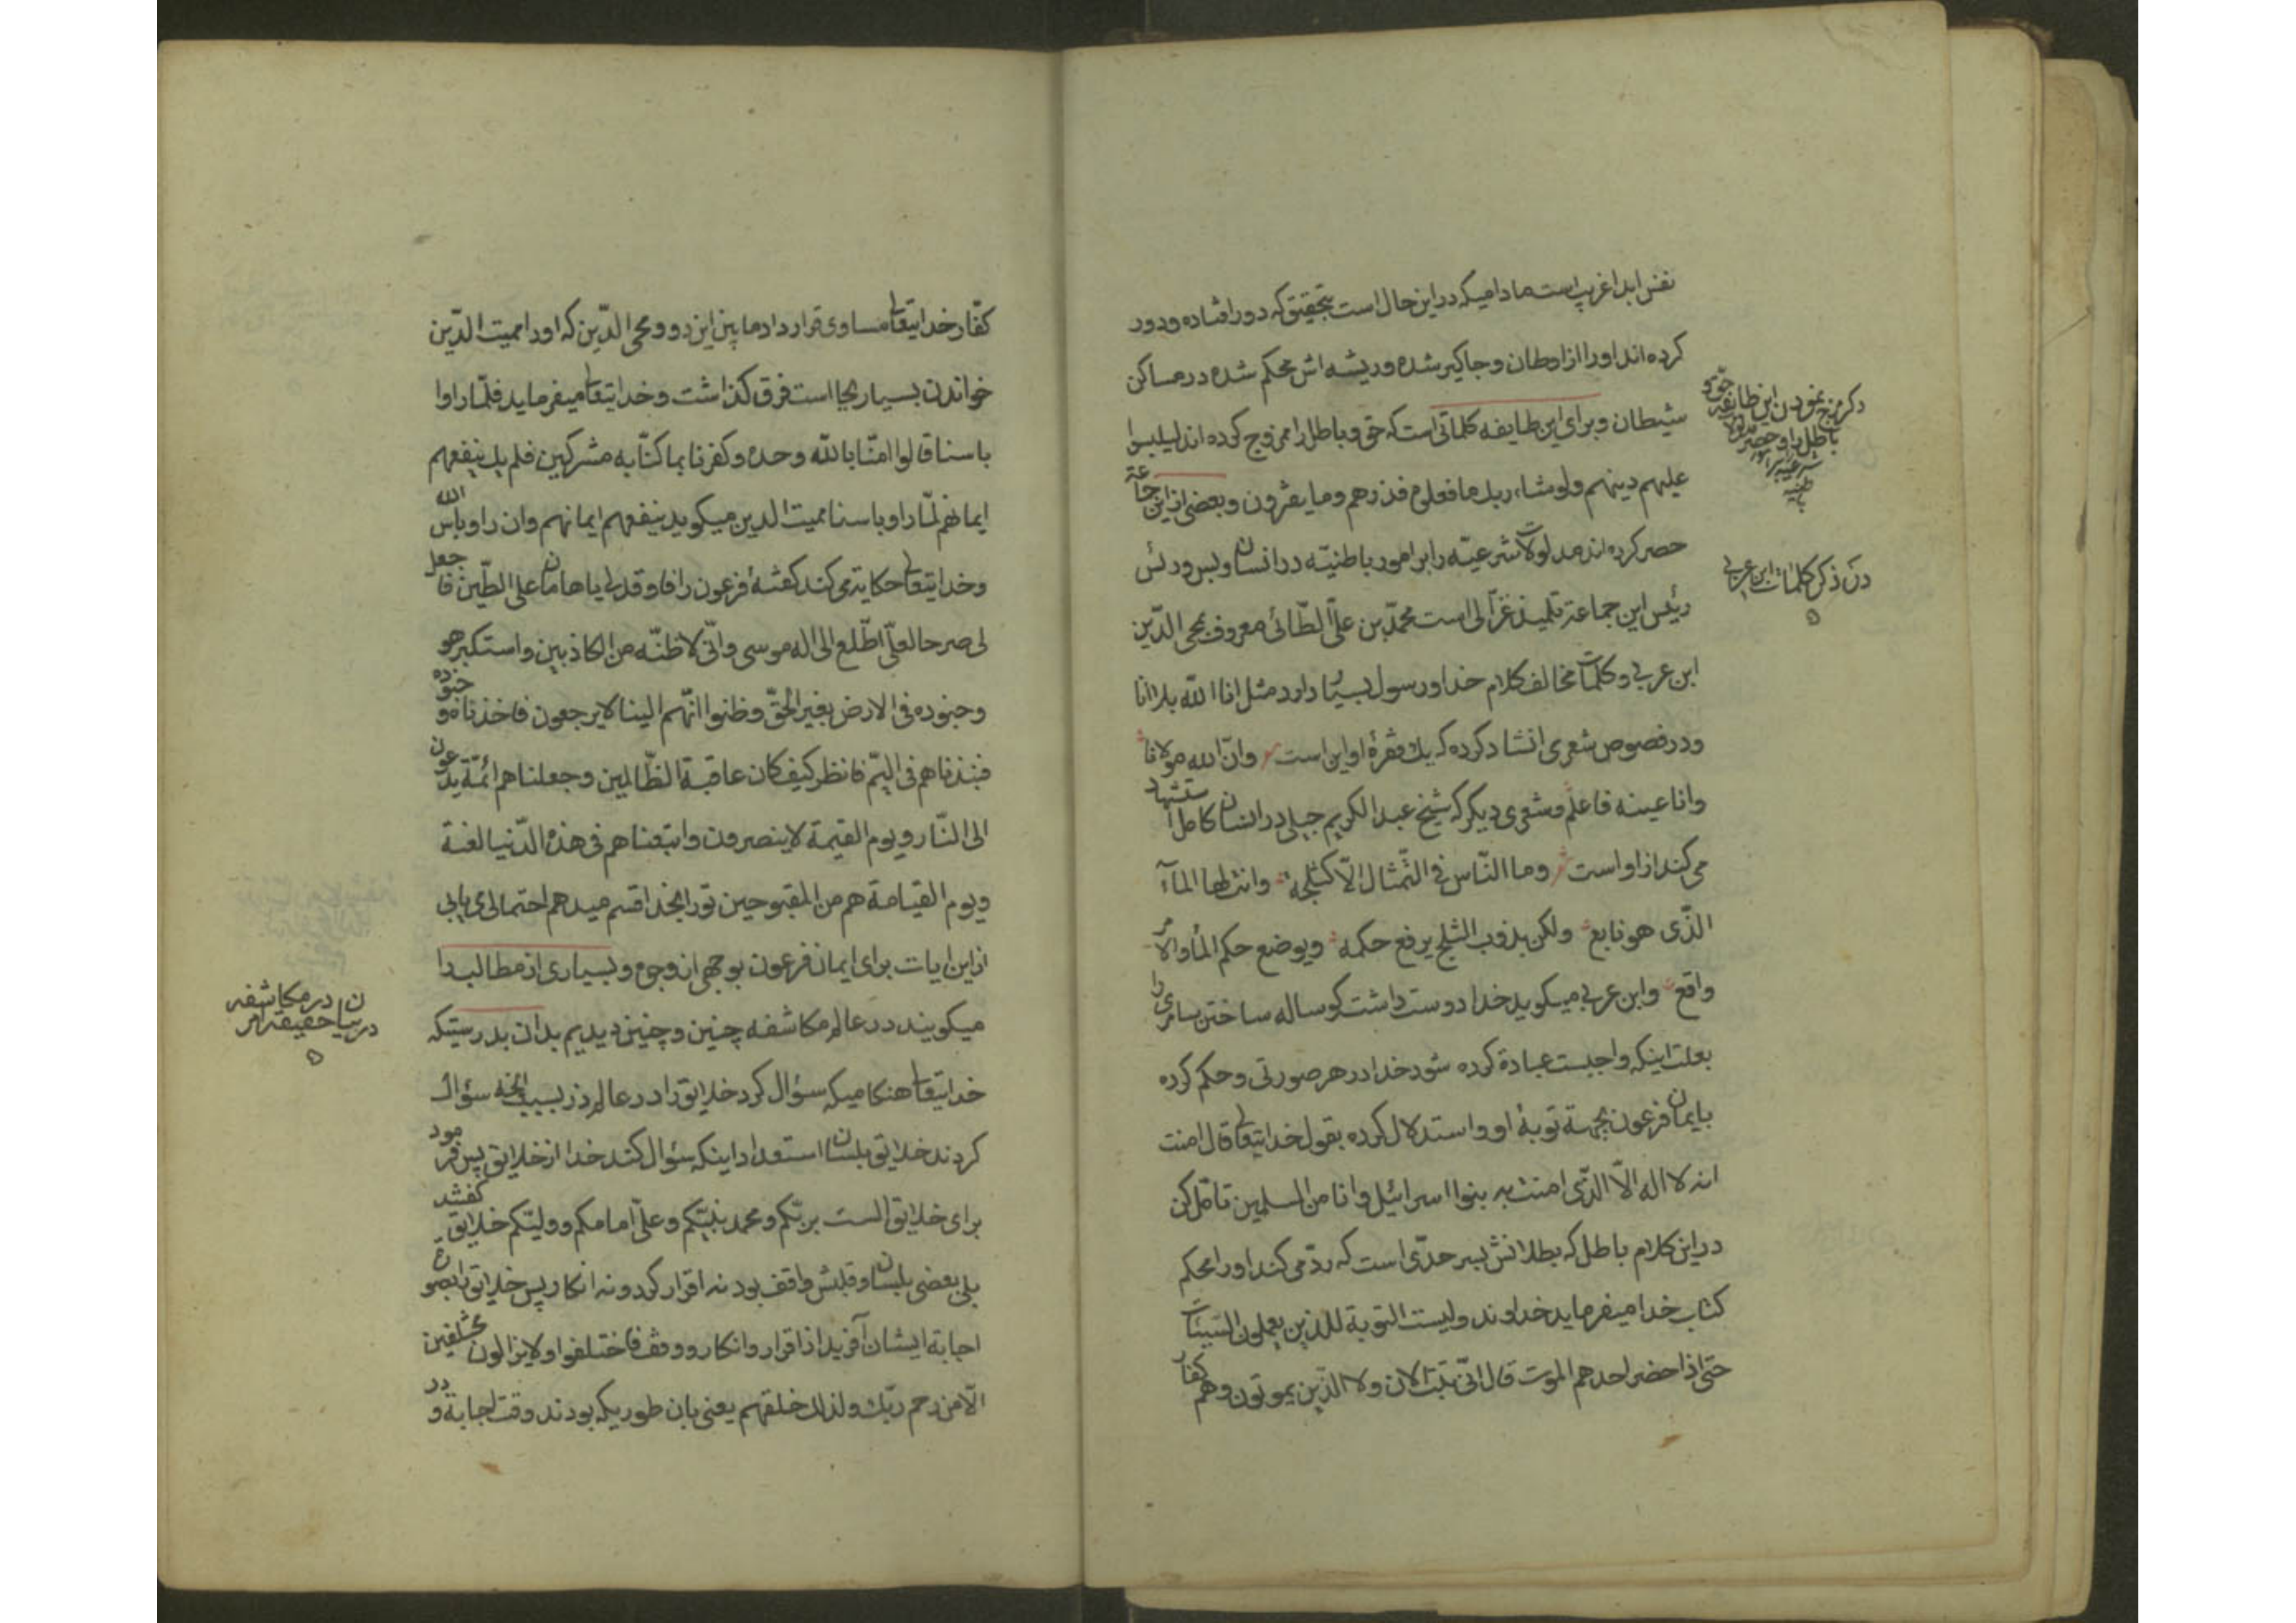 نفس ابدا غریب است مادامیکه در این حال است بتحقیق که دور افتاده و دور
کرده اند او را از اوطان و جاگیر شده و ریشه اش محکم شده در مساکن
شیطان و برای این طایفه کلماتی است که حق و باطل را ممزوج کرده اند لیلبسوا
علیهم دینهم ولو شاء ربك ما فعلوه فذرهم وما یفترون و بعضی از این جماعة
حصر کرده اند مدلولات شرعیّه را بر امور باطنیّه در انسان و بس و رئس
رئیس این جماعة تلمیذ غزّالی است محمّد بن علیّ الطّائی معروف بمحی الدّین
ابن عربی و کلمات مخالف کلام خدا و رسول بسیار دارد مثل انا اللّه بلا انا
و در فصوص شعری انشاد کرده که یك فقرۀ او این است وانّ اللّه مولانا
وانا عینه فاعلم و شعری دیگر که شیخ عبد الکریم جیلی در انسان کامل استشهاد
می کند از او است وما النّاس فی التّمثال الّا کثلجة وانت لها المآء
الّذی هو نابع ولکن بذوب الثلج یرفع حکمه ویوضع حکم المآء والامر
واقع و ابن عربی میگوید خدا دوست داشت گوساله ساختن سامری را
بعلت اینکه واجبست عبادة کرده شود خدا در هر صورتی و حکم کرده
بایمان فرعون بجهة توبۀ او و استدلال کرده بقول خدایتعالی قال امنت
انه لا اله الّا الّذی امنت به بنوا اسرائیل وانا من المسلمین تامّل کن
در این کلام باطل که بطلانش بسر حدّی است که ردّ می کند او را محکم
کتاب خدا میفرماید خداوند ولیست التوبة للذین یعملون السّیئات
حتّی اذا حضر احدهم الموت قال انّی تبت الان ولا الّذین یموتون وهم کفار
در ذکر کلمات ابن عربی
کفّار خدایتعالی مساوی قرار داد ما بین این دو و محی الدّین که او را ممیت الدّین
خواندن بسیار بجا است فرق گذاشت و خدایتعالی میفرماید فلمّا راوا
باسنا قالوا امنّا باللّه وحده وکفرنا بما کنّا به مشرکین فلم یك ینفعهم
ایمانهم لمّا راو باسنا ممیت الدین میگوید ینفعهم ایمانهم وان راو باس اللّه
و خدایتعالی حکایة می کند گفتۀ فرعون را فاوقد لی یا هامان علی الطّین فاجعل
لی صرحا لعلّی اطّلع الی اله موسی وانّی لاظنّه من الکاذبین واستکبر هو
وجنوده فی الارض بغیر الحقّ وظنوا انّهم الینا لا یرجعون فاخذناه وجنوده
فنبذناهم فی الیّم فانظر کیف کان عاقبة الظّالمین وجعلناهم ائمّة یدعون
الی النّار ویوم القیمة لا ینصرون واتبعناهم فی هذه الدّنیا لعنة
ویوم القیامة هم من المقبوحین تو را بخدا قسم میدهم احتمالی می یابی
از این ایات برای ایمان فرعون بوجهی از وجوه و بسیاری از مطالب را
میگویند در عالم مکاشفه چنین و چنین دیدیم بدان بدرستیکه
خدایتعالی هنگامیکه سؤال کرد خلایق را در عالم ذر بسبب انچه سؤال
کردند خلایق بلسان استعداد اینکه سؤال کند خدا از خلایق پس فرمود
برای خلایق الست بربّکم ومحمد نبیّکم وعلیّ امامکم وولیّکم خلایق گفتند
بلی بعضی بلسان و قلبش واقف بود نه اقرار کرد و نه انکار پس خلایق را بصورة
اجابة ایشان آفرید از اقرار و انکار و وقف فاختلفوا ولا یزالون مختلفین
الّا من رحم ربّك ولذلك خلقهم یعنی بان طوریکه بودند وقت اجابة و در
در بیان حقیقة امر
در مکاشفه